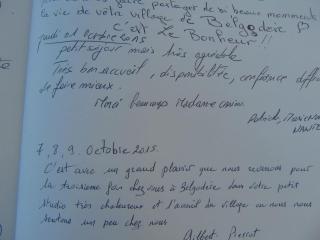 partager de si beaux moments
la vie de vôtre village de Belgodère
C'est
Le Bonheur !!
petit séjour mais très agréable
Très bon accueil, disponibilité,
de faire mieux.
Merci beaucoup Madame
Patrick,
7, 8, 9, Octobre 2015.
C'est avec un grand plaisir que nous revenons pour
la troisième fois chez vous à Belgodère dans votre petit
studio très chaleureux et l'accueil du village ou nous nous
sentons un peu chez nous
Gilbert